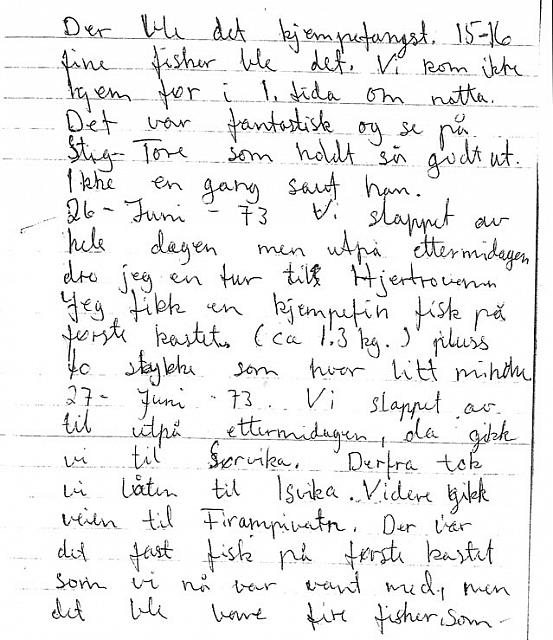 Der ble det kjempefangst. 15-16
fine fisher ble det. Vi kom ikke
hjem før i 1. tida om natta.
Det var fantastisk og se på
Stig-Tore som holdt så godt ut.
Ikke en gang sauf han.
26 - Juni - 73 Vi slappet av
hele dagen men utpå ettermidagen
dro jeg en tur til Hjertrovenn
Jeg fikk en kjempefin fisk på
første kastet. (ca 1.3 kg.) pluss
to stykke som hvor litt mindre
27 - Juni - 73. Vi slappet av
til utpå ettermidagen, da gikk
vi til Sørvika. Derfra tok
vi båten til Isvika. Videre gikk
veien til Firampivatn. Der var
det fast fisk på første kastet
som vi nå var vant med, men
det ble bare fire fisher, som-